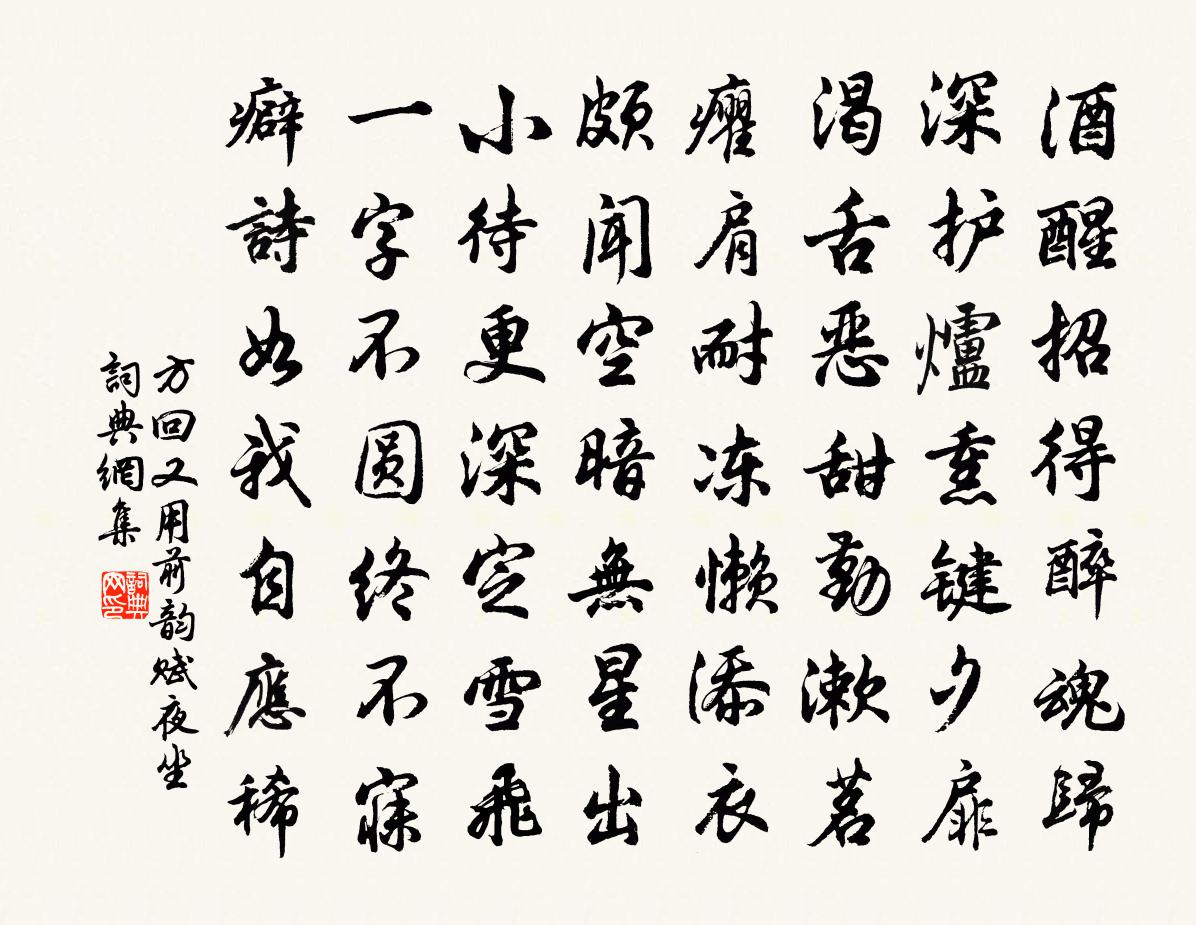 酒醒招得醉魂歸
深护爐熏键夕扉
渴舌恶甜勤漱茗
癯肩耐冻懒添衣
頗闻空暗無星出
小待更深定雪飛
一字不圆终不寐
癖詩如我自應稀
方回又用前韵赋夜坐
詞典網集
詞典网印